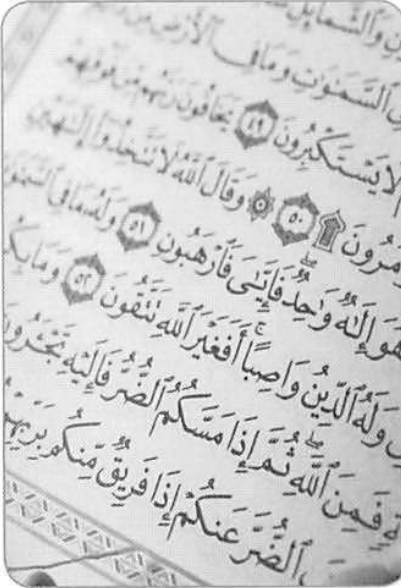 وَالشَّمَآئِلِ
ٱلسَّمَٰوَٰتِ وَمَا فِى ٱلْأَرْضِ مِن
لَا يَسْتَكْبِرُونَ ٤٩ يَخَافُونَ رَبَّهُم مِّن فَوْقِهِمْ
۩ ٥٠ ۞ وَقَالَ ٱللَّهُ لَا تَتَّخِذُوٓا۟ إِلَٰهَيْنِ
هُوَ إِلَٰهٌ وَٰحِدٌ فَإِيَّٰىَ فَٱرْهَبُونِ ٥١ وَلَهُۥ مَا فِى
وَلَهُ ٱلدِّينُ وَاصِبًا أَفَغَيْرَ ٱللَّهِ تَتَّقُونَ ٥٢ وَمَا
فَمِنَ ٱللَّهِ ثُمَّ إِذَا مَسَّكُمُ ٱلضُّرُّ فَإِلَيْهِ تَجْـَٔرُونَ
ٱلضُّرَّ عَنكُمْ إِذَا فَرِيقٌ مِّنكُم بِرَبِّهِمْ